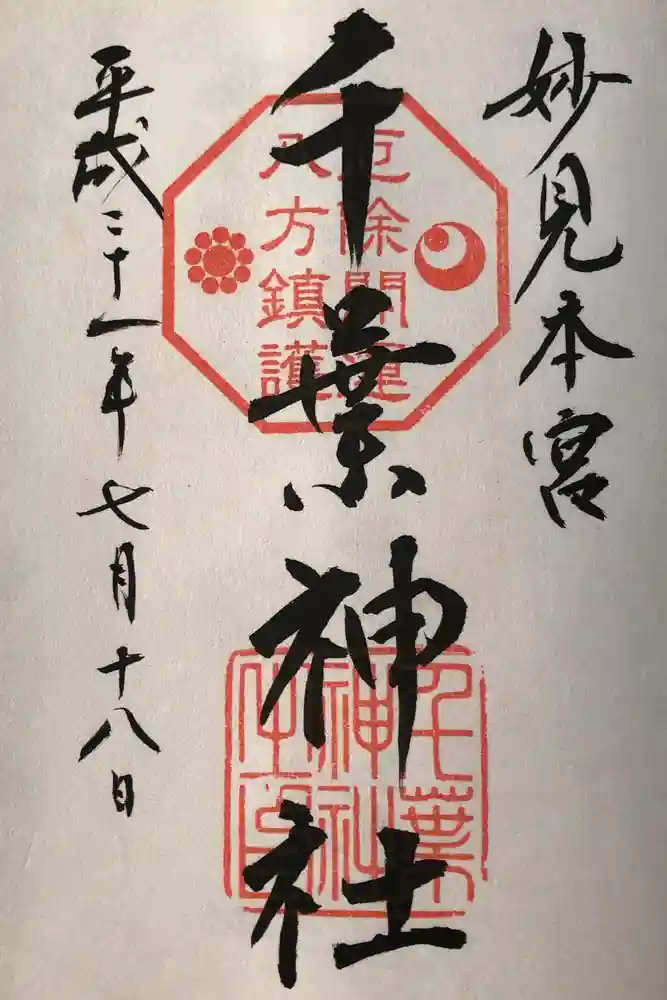 妙見本宮
千葉神社
平成二十一年七月十八日
厄除開運
八方鎮護
千葉
神社